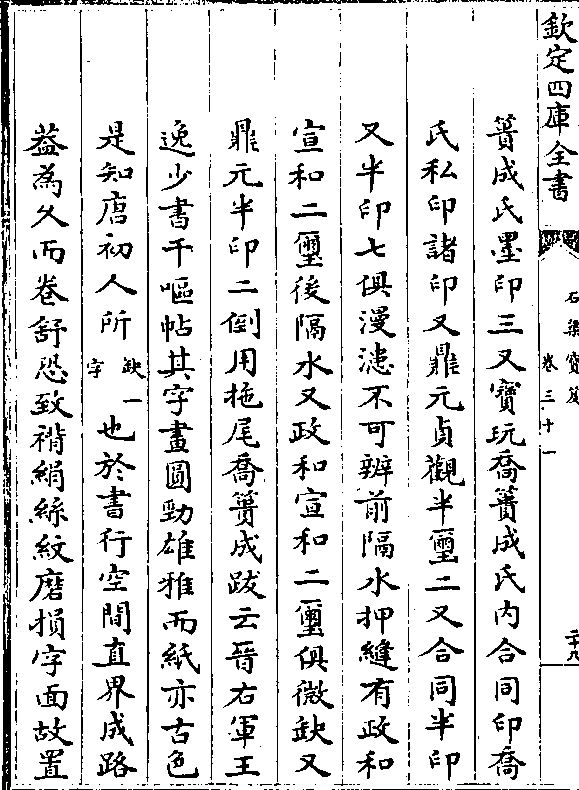 欽定四庫全書
石渠寶笈
卷三十一
二十八
簣成氏墨印三又寶玩喬簣成氏內合同印喬
氏私印諸印又鼎元貞觀半璽二又合同半印
又半印七俱漫漶不可辨前隔水押縫有政和
宣和二璽後隔水又政和宣和二璽俱微缺又
鼎元半印二倒用拖尾喬簣成跋云晉右軍王
逸少書干嘔帖其字畫圓勁雄雅而紙亦古色
是知唐初人所缺一字也於書行空間直界成路
葢為久而卷舒恐致褙絹絲紋磨損字面故置